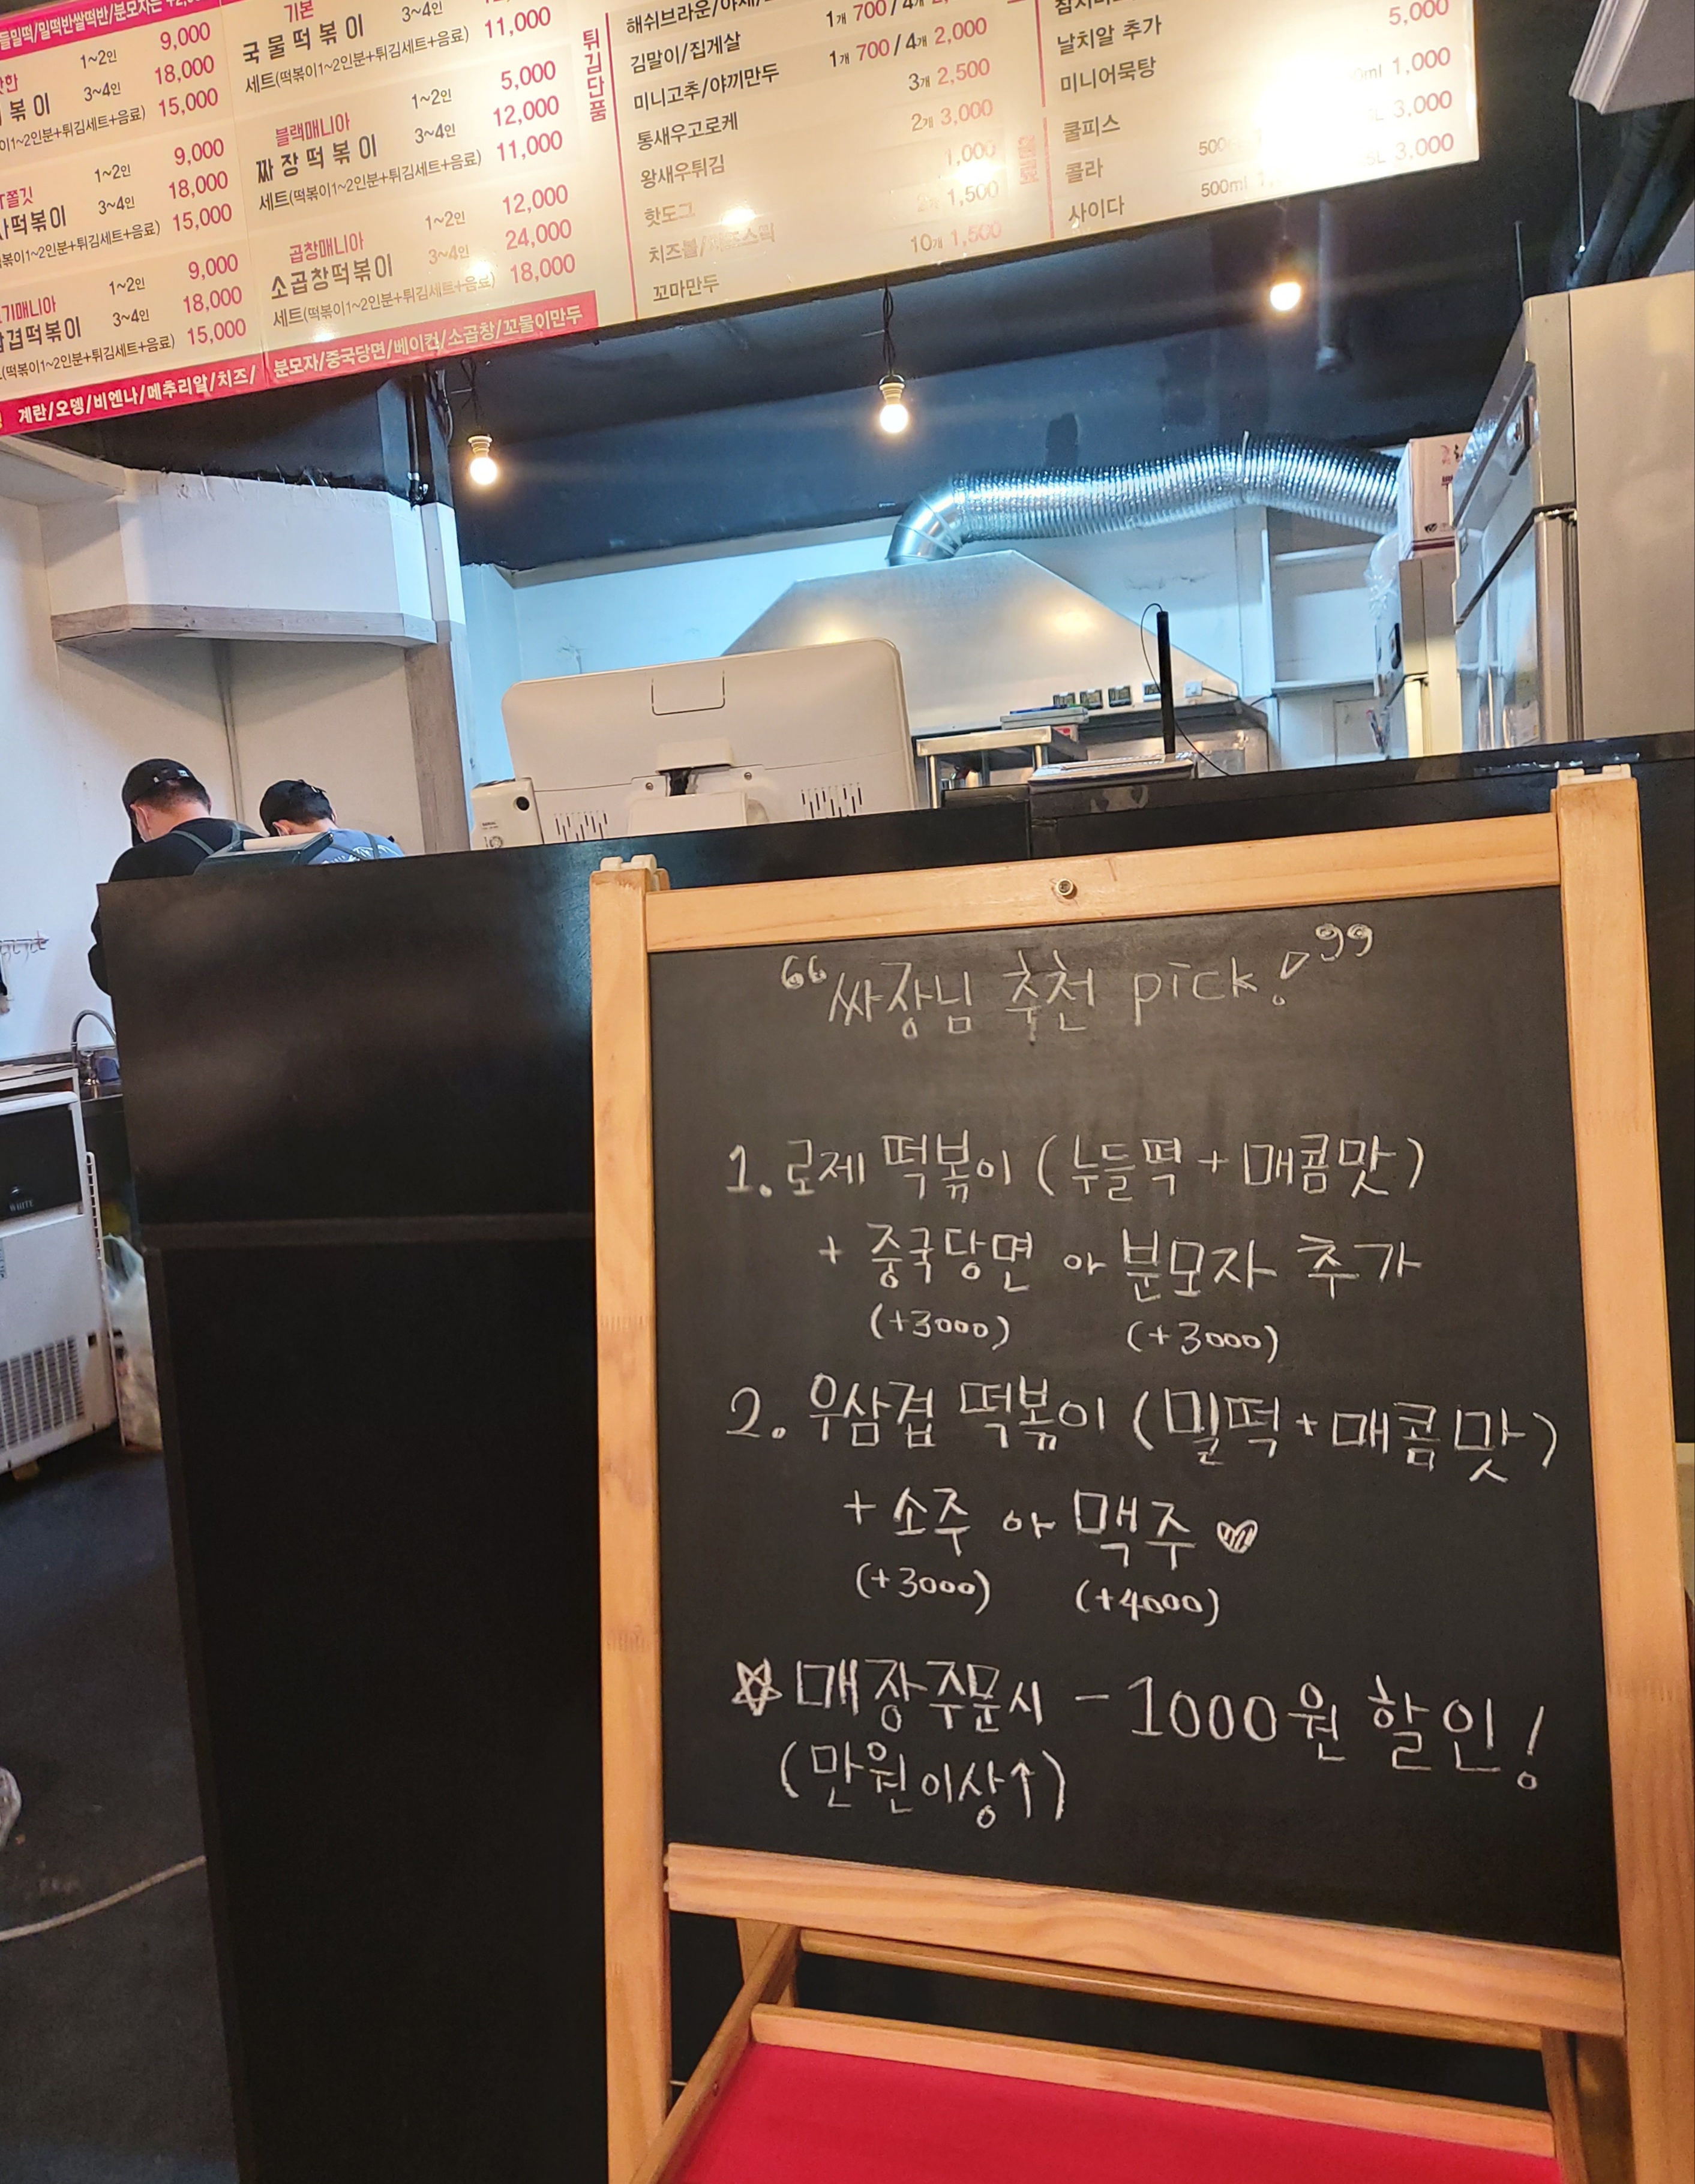 들밀떡/밀떡반쌀떡반/분모자는
1~2인 9,000
볶이 3~4인 18,000
이1~2인분+튀김세트+음료) 15,000
쫄깃 1~2인 9,000
떡볶이 3~4인 18,000
볶이1~2인분+튀김세트+음료) 15,000
기매니아 1~2인 9,000
삼겹떡볶이 3~4인 18,000
(떡볶이1~2인분+튀김세트+음료) 15,000
계란/오뎅/비엔나/메추리알/치즈/
기본
국물떡볶이 3~4인
세트(떡볶이1~2인분+튀김세트+음료) 11,000
블랙매니아 1~2인 5,000
짜장떡볶이 3~4인 12,000
세트(떡볶이1~2인분+튀김세트+음료) 11,000
곱창매니아 1~2인 12,000
소곱창떡볶이 3~4인 24,000
세트(떡볶이1~2인분+튀김세트+음료) 18,000
분모자/중국당면/베이컨/소곱창/꼬물이만두
튀김단품
해쉬브라운/야채/
김말이/집게살 1개 700 / 4개
미니고추/야끼만두 1개 700 / 4개 2,000
통새우고로케 3개 2,500
왕새우튀김 2개 3,000
핫도그 1,000
치즈볼/치즈스틱 2개 1,500
꼬마만두 10개 1,500
날치알 추가
미니어묵탕 5,000
쿨피스 1,000
콜라 3,000
사이다 500ml 3,000
"싸장님 추천 pick!"
1. 로제 떡볶이 (누들떡 + 매콤맛)
+ 중국당면 or 분모자 추가
(+3000) (+3000)
2. 우삼겹 떡볶이 (밀떡 + 매콤맛)
+ 소주 or 맥주 ♡
(+3000) (+4000)
☆ 매장주문시 -1000원 할인!
(만원이상↑)
WHITE